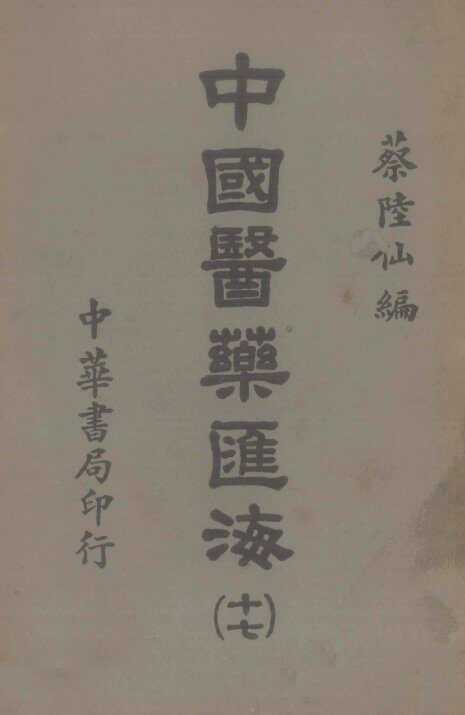 蔡陸仙編
中國醫藥匯海
(十七)
中華書局印行